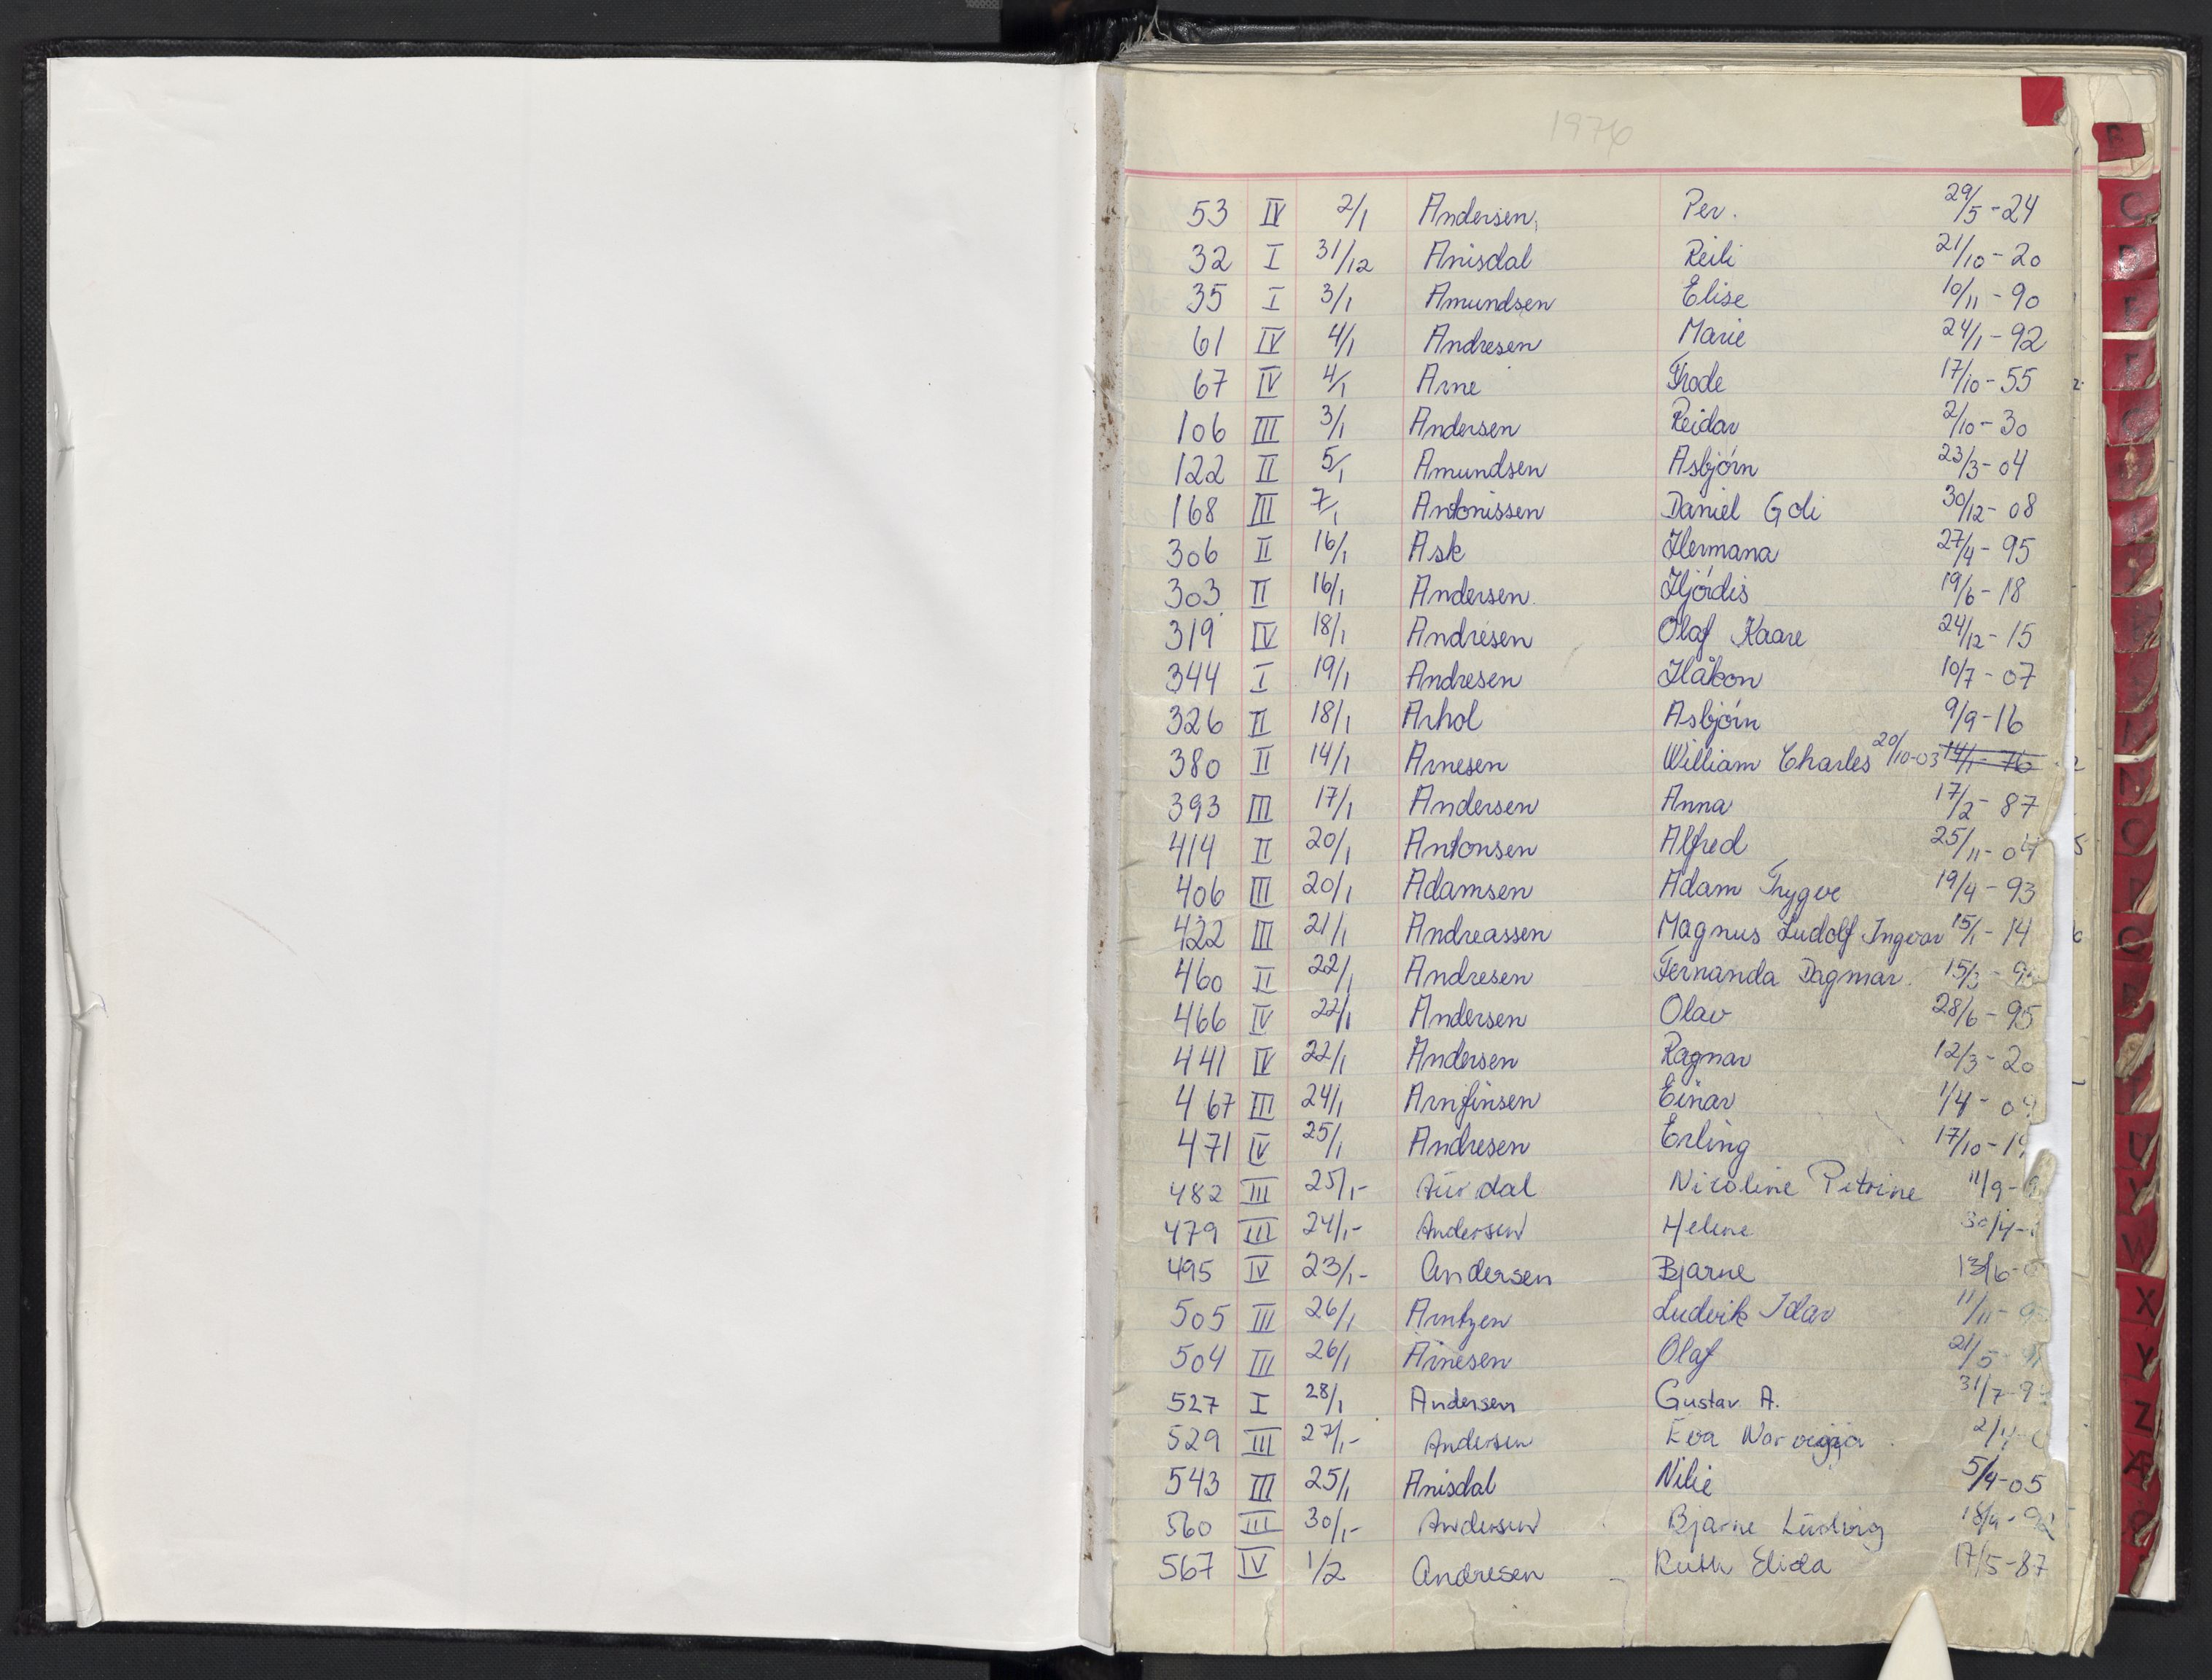 1976
53 IV 2/1 Andersen, Per. 29/5-24
32 I 31/12 Anisdal Reili 21/10-20
35 I 3/1 Amundsen Elise 10/11-90
61 IV 4/1 Andresen Marie 24/1-92
67 IV 4/1 Arne Frode 17/10-55
106 III 3/1 Andersen Reidar 2/10-30
122 II 5/1 Amundsen Asbjørn 23/3-04
168 III 7/1 Antonissen Daniel Goli 30/12-08
306 II 16/1 Ask Hermana 27/4-95
303 II 16/1 Andersen Hjørdis 19/6-18
319 IV 18/1 Andresen Olaf Kaare 24/12-15
344 I 19/1 Andresen Håkon 10/7-07
326 II 18/1 Arhol Asbjørn 9/9-16
380 II 14/1 Arnesen William Charles 20/10-03 14/1-76
393 III 17/1 Andersen Anna 17/2-87
414 II 20/1 Antonsen Alfred 25/11-04
406 III 20/1 Adamsen Adam Trygve 19/4-93
422 III 21/1 Andreassen Magnus Ludolf Ingvar 15/1-14
460 II 22/1 Andresen Fernanda Dagmar. 15/3-9
466 IV 22/1 Andersen Olav 28/6-95
441 IV 22/1 Andersen Ragnar 12/3-20
467 III 24/1 Arnfinsen Einar 1/4-04
471 IV 25/1 Andresen Erling 17/10-1
482 III 25/1- Aurdal Nicoline Petrine 11/9-
479 III 24/1- Andersen Helene 30/4-
495 IV 23/1- Andersen Bjarne 13/6-
505 III 26/1 Arntzen Ludvik Idar 11/11-9
504 III 26/1 Arnesen Olaf 21/5-9
527 I 28/1 Andersen Gustav A. 31/7-9
529 III 27/1- Andersen Eva Norvegia
543 III 25/1 Anisdal Nilie 5/4-05
560 III 30/1- Andersen Bjarne Ludvig 18/4-92
567 IV 1/2 Andresen Ruth Elida 17/5-87
C
X
Y
Z
Æ